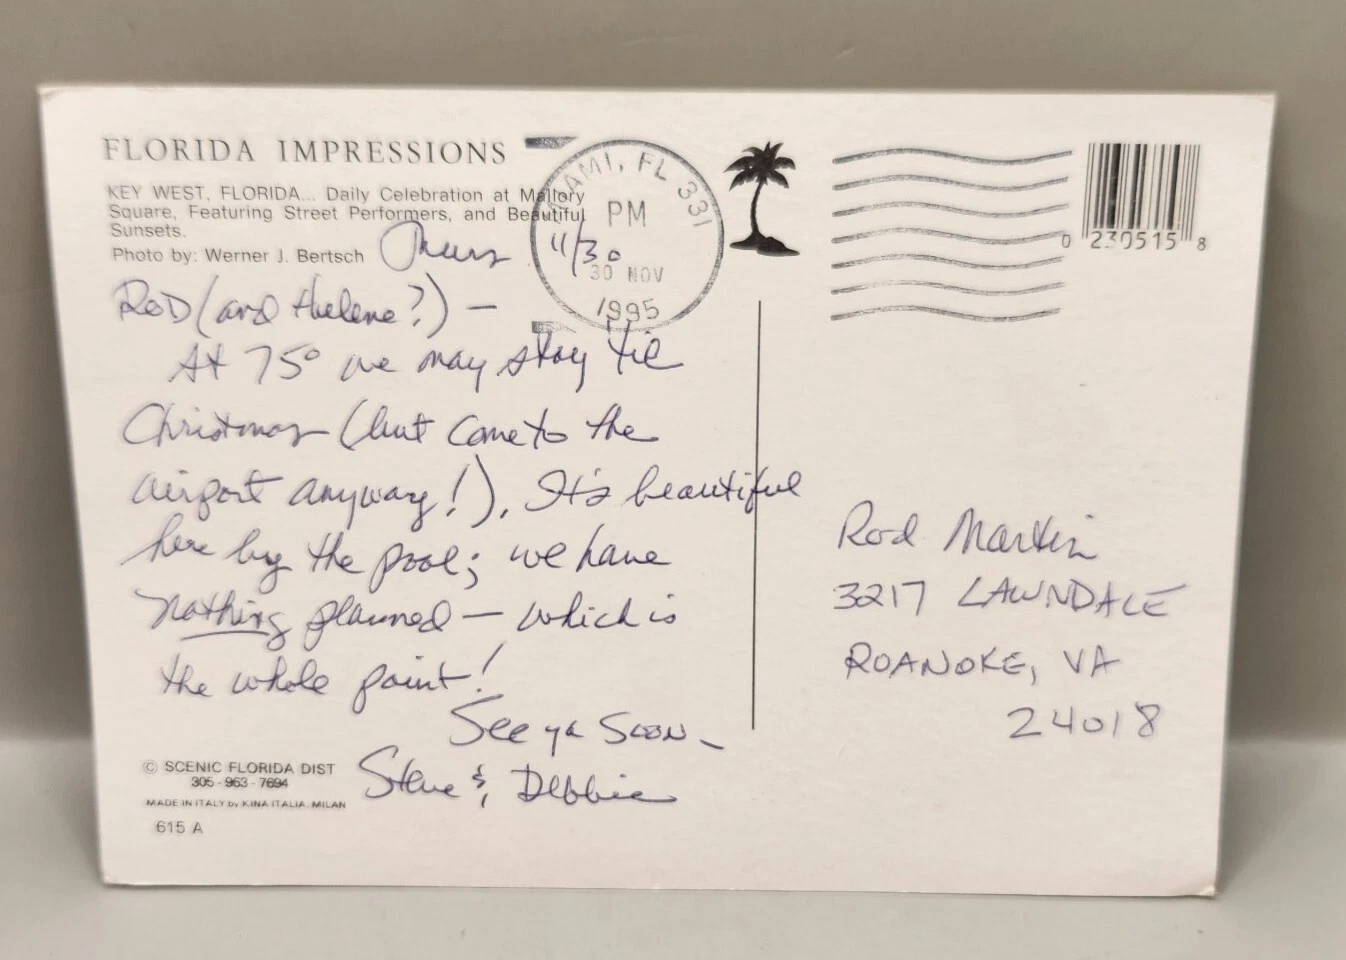 FLORIDA IMPRESSIONS
KEY WEST, FLORIDA... Daily Celebration at Mallory
Square, Featuring Street Performers, and Beautiful
Sunsets.
Photo by: Werner J. Bertsch
Thurs 11/30
ROD (and Helene?) —
At 75° we may stay til
Christmas (but come to the
airport anyway!). It's beautiful
here by the pool; we have
nothing planned — which is
the whole point!
See ya Soon —
Steve & Debbie
© SCENIC FLORIDA DIST
305-963-7694
MADE IN ITALY by KINA ITALIA, MILAN
615 A
MIAMI, FL 331
PM
30 NOV
1995
0 230515 8
Rod Martin
3217 LAWNDALE
ROANOKE, VA
24018